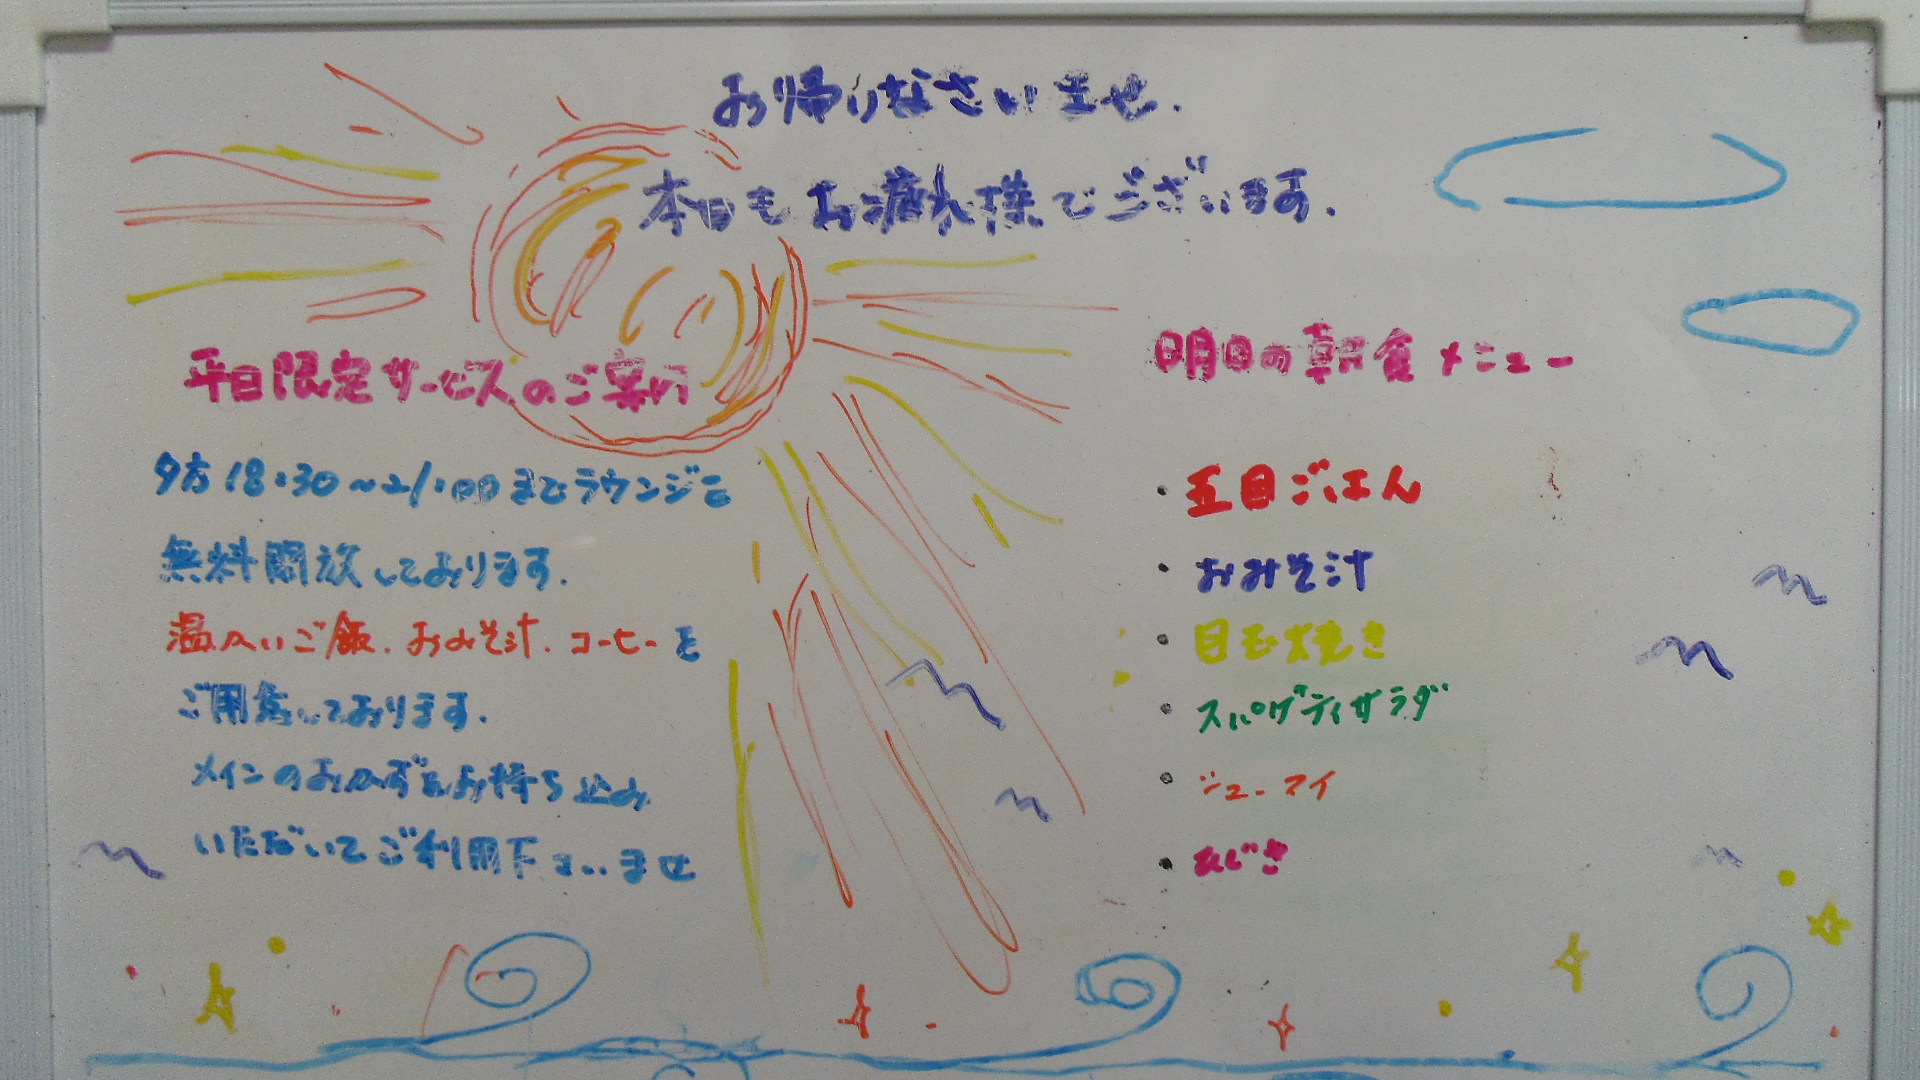 お帰りなさいませ.
本日もお疲れ様でございます.
平日限定サービスのご案内
夕方18:30~21:00までラウンジを
無料開放しております.
温かいご飯.おみそ汁.コーヒーを
ご用意しております.
メインのおかずをお持ち込み
いただいてご利用下さいませ
明日の朝食メニュー
・五目ごはん
・おみそ汁
・目玉焼き
・スパゲティサラダ
・シューマイ
・ひじき